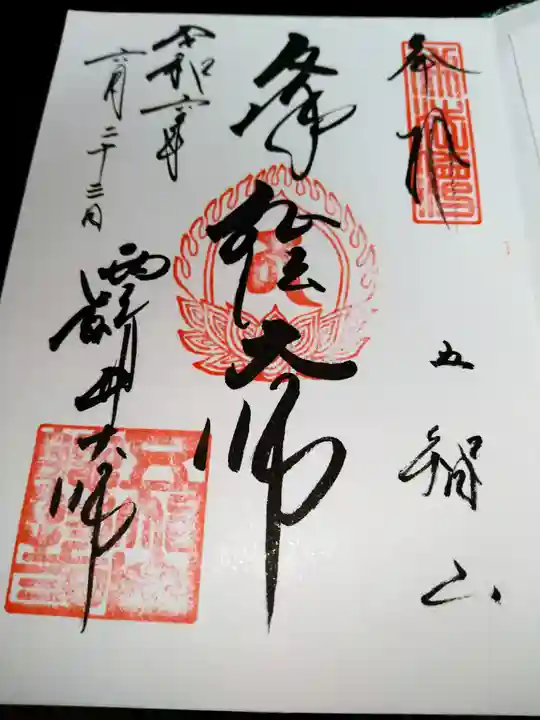 奉拝
五智山
弘法大師
令和六年
六月二十三日
西新井大師